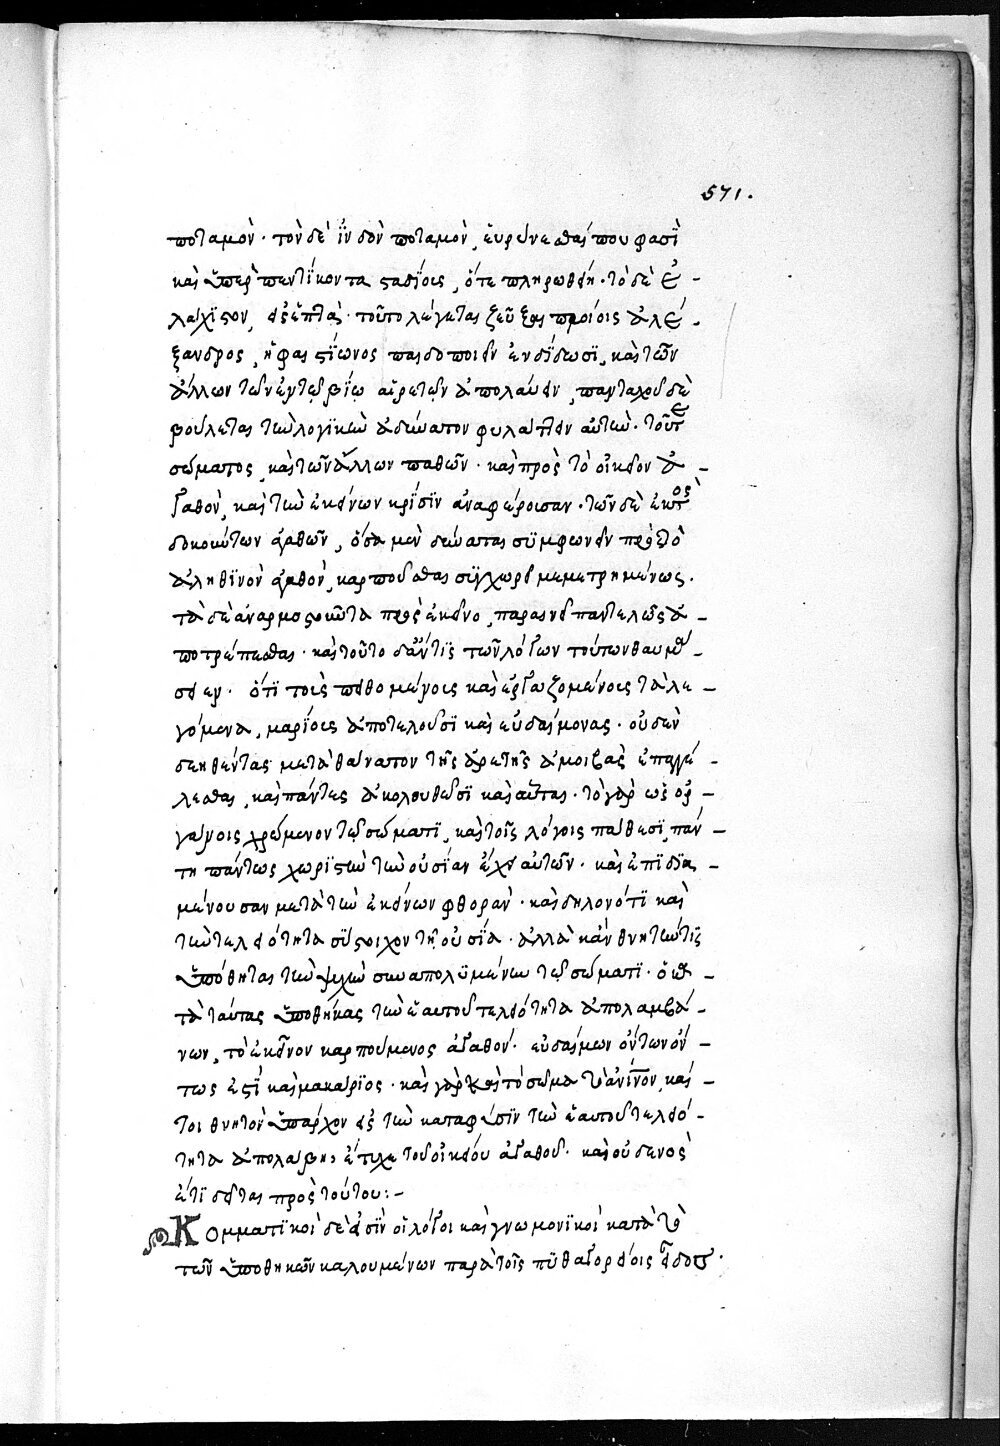 571.
ποταμὸν· τὸν δὲ ἰνδὸν ποταμὸν, εὑρύνεσθαί που φασὶ
καὶ ὑπὲρ πεντήκοντα σταδίοις, ὅτε πληρωθείη· τὸ δὲ ἐ-
λάχιστον, εἰς ἑπτὰ· τοῦτο λέγεται ζεῦξαι πλοίοις ἀλέ-
ξανδρος,
ἄλλων τῶν ἐν τῷ βίῳ αἱρετῶν ἀπολαύειν, πανταχοῦ δὲ
βούλεται τὴν λογικὴν ἀδείνωτον φυλάττειν αὐτὴν· τοῦτε
σώματος, καὶ τῶν ἄλλων παθῶν· καὶ πρὸς τὸ οἰκεῖον ἀ-
γαθὸν, καὶ τὴν ἐκείνων κρίσιν ἀναφέροισαν· τῶν δὲ ἐκτὸς
δοκούντων ἀγαθῶν, ὅσα μὲν δύναται συμφωνεῖν πρὸς τὸ
ἀληθινὸν ἀγαθὸν, καρποῦσθαι συγχωρεῖ μεμετρημένως.
τὰ δὲ ἀναρμοστοῦντα πρὸς ἐκεῖνο, παραινεῖ παντελῶς ἀ-
ποτρέπεσθαι· καὶ τοῦτο δ' ἄν τις τῶν λόγων τούτων θαυμά-
σειεν· ὅτι τοὺς πειθομένους καὶ ἐργαζομένους τὰ λε-
γόμενα, μακαρίους ἀποτελοῦσι καὶ εὐδαίμονας· οὐδὲν
δεηθέντας μετὰ θάνατον τῆς ἀρετῆς ἀμοιβὰς ἐπαγγέ-
λεσθαι, καὶ πάντες ἀκολουθεῖσι καὶ αὗται· τὸ γὰρ ὡς ὀρ-
γάνοις χρώμενον τῷ σώματι, καὶ τοῖς λόγοις πάθεσι, πάν-
τη πάντως χωριστὴν τὴν οὐσίαν ἔχει αὐτῶν· καὶ ἐπιδια-
μένουσαν μετὰ τὴν ἐκείνων φθορὰν· καὶ δηλονότι καὶ
τὴν τελειότητα σύστοιχον τῇ οὐσίᾳ· ἀλλὰ κἂν θνητήν τις
ὑπόθηται τὴν ψυχὴν συναπολυμένην τῷ σώματι· ὁ κα-
τὰ ταύτας ὑποθήκας τὴν ἑαυτοῦ τελειότητα ἀπολαμβά-
νων, τὸ ἐκεῖνον καρπούμενος ἀγαθόν· εὐδαίμων ὄντων ὄν-
τως ἐστὶ καὶ μακάριος· καὶ γὰρ καὶ τὸ σῶμα τὸ ἀνινον, καί-
τοι θνητὸν ὑπάρχον εἰς τὴν κατὰ φύσιν τὴν ἑαυτοῦ τελειό-
τητα ἀπολάβῃ, ἔτυχε τοῦ οἰκείου ἀγαθοῦ· καὶ οὐδενὸς
ἔτι δεῖται πρὸς τούτου:-
Κομματικοὶ δὲ εἰσὶν οἱ λόγοι καὶ γνωμονικοὶ κατὰ τὸ
τῶν ὑποθηκῶν καλουμένων παρὰ τοῖς πυθαγορείοις εἶδος·